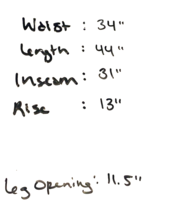 Waist : 34"
Length : 44"
Inseam : 31"
Rise : 13"
Leg Opening : 11.5"